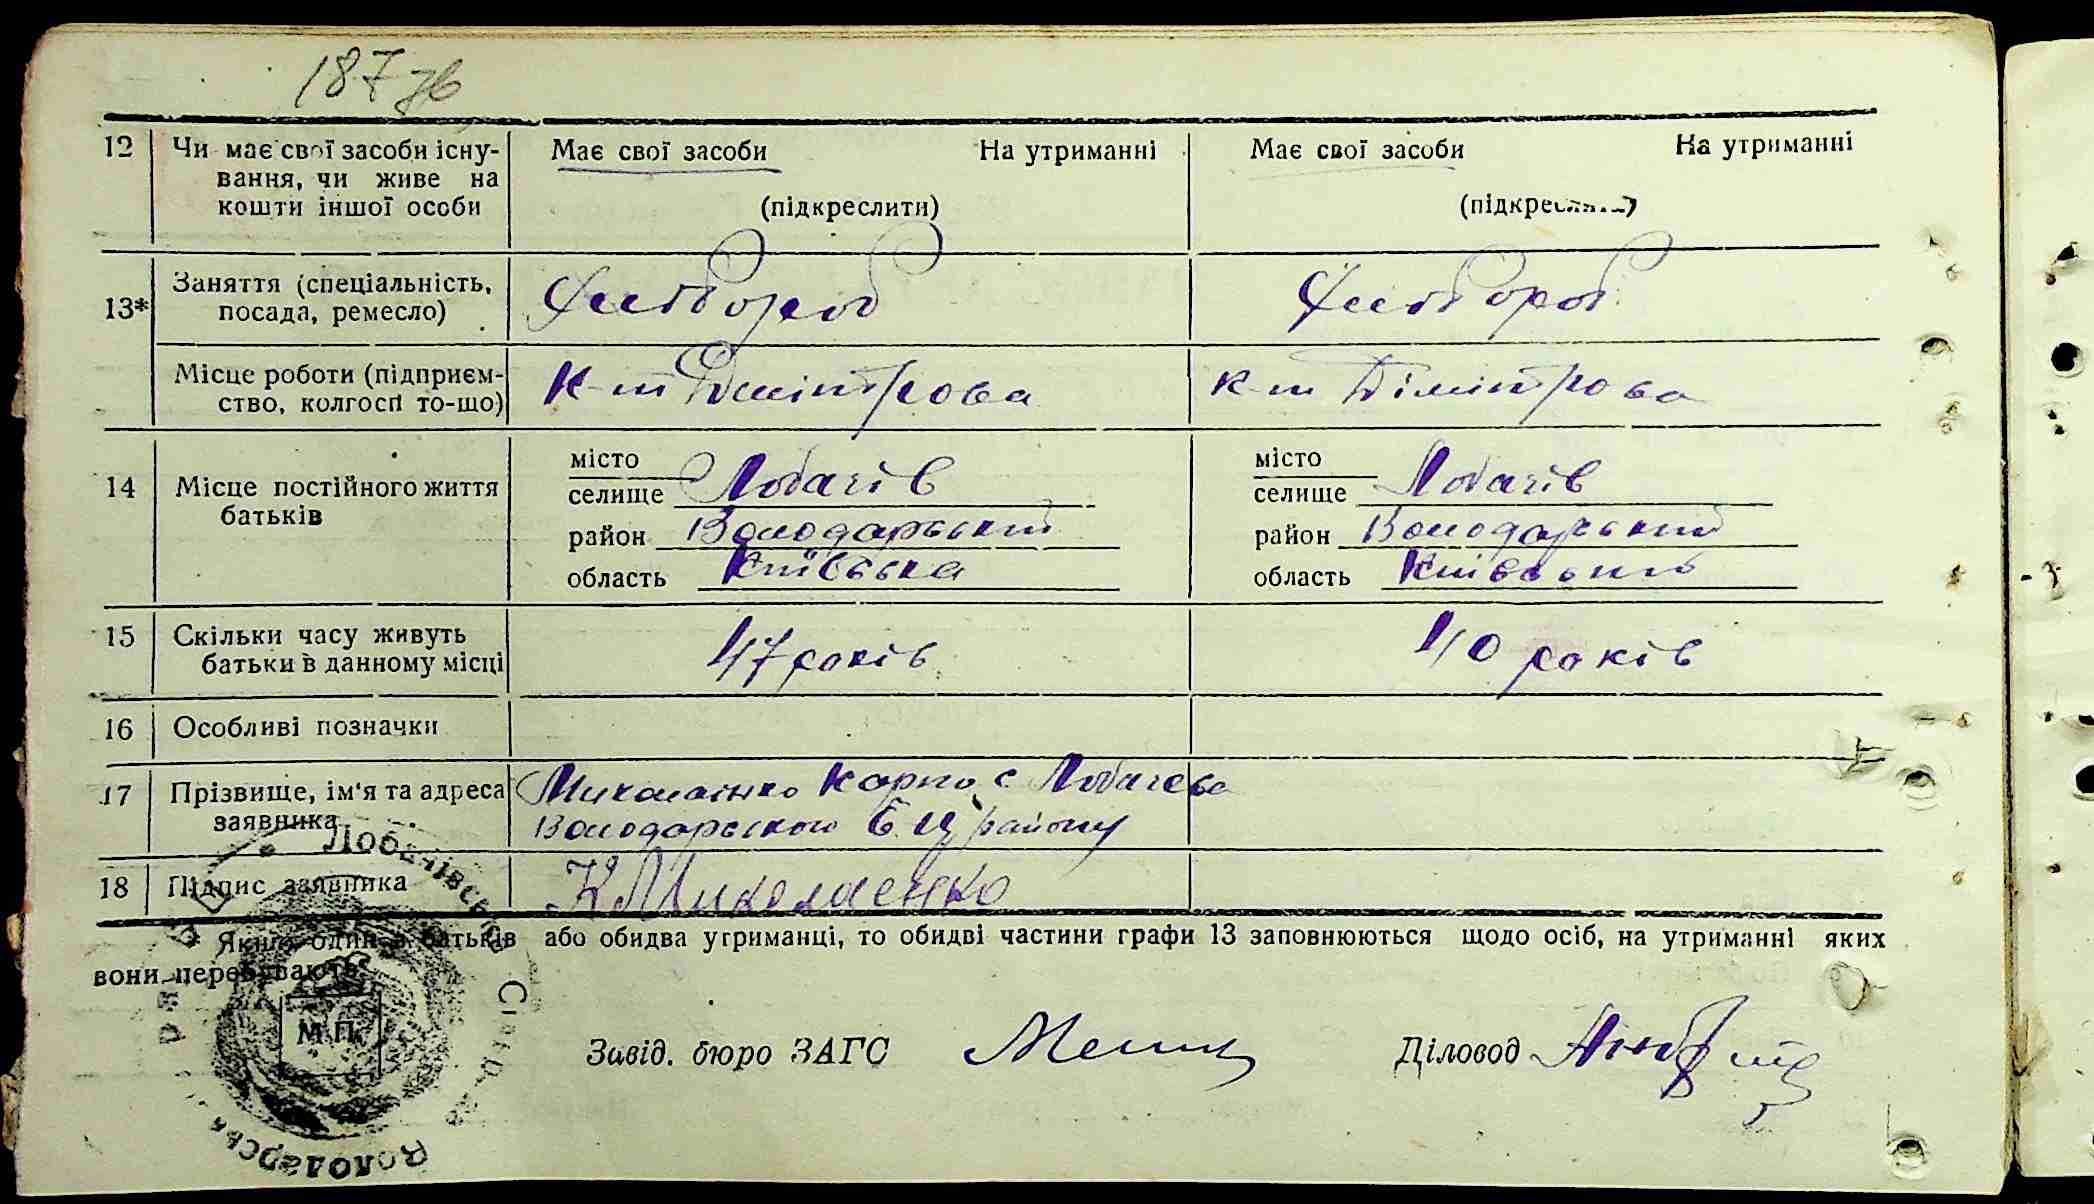 187 зв
12 Чи має свої засоби існу-
вання, чи живе на
кошти іншої особи
Має свої засоби На утриманні
(підкреслити)
Має свої засоби На утриманні
(підкреслити)
13* Заняття (спеціальність,
посада, ремесло)
Хлібороб
Хлібороб
Місце роботи (підприєм-
ство, колгосп то-що)
к-т Дімітрова
к-т Дімітрова
14 Місце постійного життя
батьків
місто
селище Лобачів
район Володарський
область Київська
місто
селище Лобачів
район Володарський
область
15 Скільки часу живуть
батьки в данному місці
47 років
40 років
16 Особливі позначки
17 Прізвище, ім'я та адреса
заявника
Миколаєнко Карпо с Лобачева
Володарського району
18 Підпис заявника
К Миколаенко
* Якщо один з батьків або обидва утриманці, то обидві частини графи 13 заповнюються щодо осіб, на утриманні яких
вони перебувають.
М.П.
Завід. бюро ЗАГС
Діловод
Лобачівська Сільрада
Володарськ